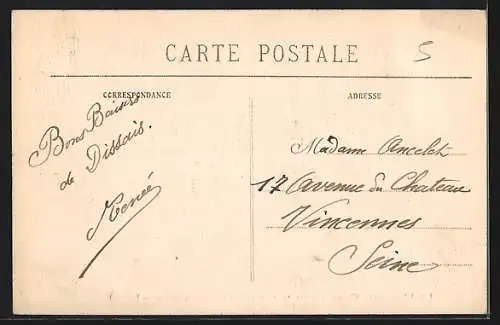 CARTE POSTALE
5
CORRESPONDANCE
ADRESSE
Bons Baisers
de Dissais.
Renée
Madame Ancelet
17 Avenue du Chateau
Vincennes
Seine